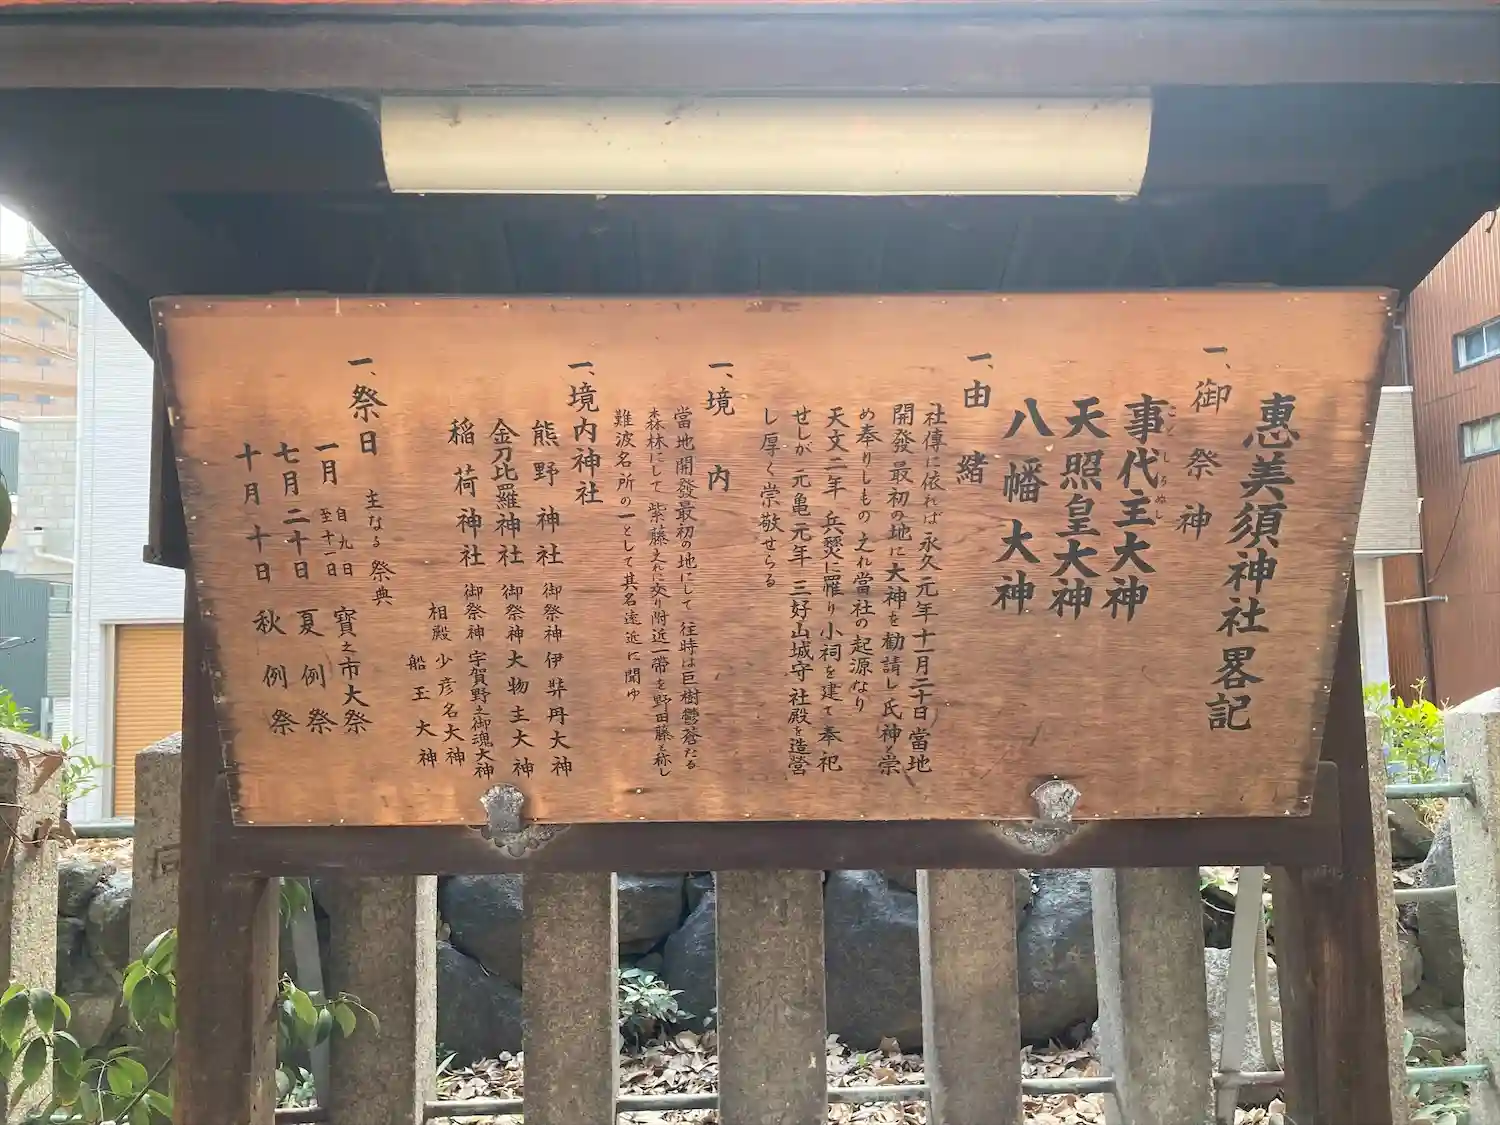 惠美須神社畧記
一、御祭神
事代主大神
ことしろぬし
天照皇大神
八幡大神
一、由緒
社傳に依れば永久元年十一月二十日當地
開發最初の地に大神を勧請し氏神と崇
め奉りしもの之れ當社の起源なり
天文二年 兵燹に罹り小祠を建て奉祀
せしが 元亀元年 三好山城守社殿を造營
し厚く崇敬せらる
一、境内
當地開發最初の地にして 往時は巨樹鬱蒼たる
森林にして 紫藤之れに交り附近一帯を野田藤と称し
難波名所の一として其名遠近に聞ゆ
一、境内神社
熊野神社 御祭神 伊弉丹大神
金刀比羅神社 御祭神 大物主大神
稲荷神社 御祭神 宇賀野之御魂大神
相殿 少彦名大神
船玉大神
一、祭日 主なる祭典
一月 自九日至十一日 寳之市大祭
七月二十日 夏例祭
十月十日 秋例祭